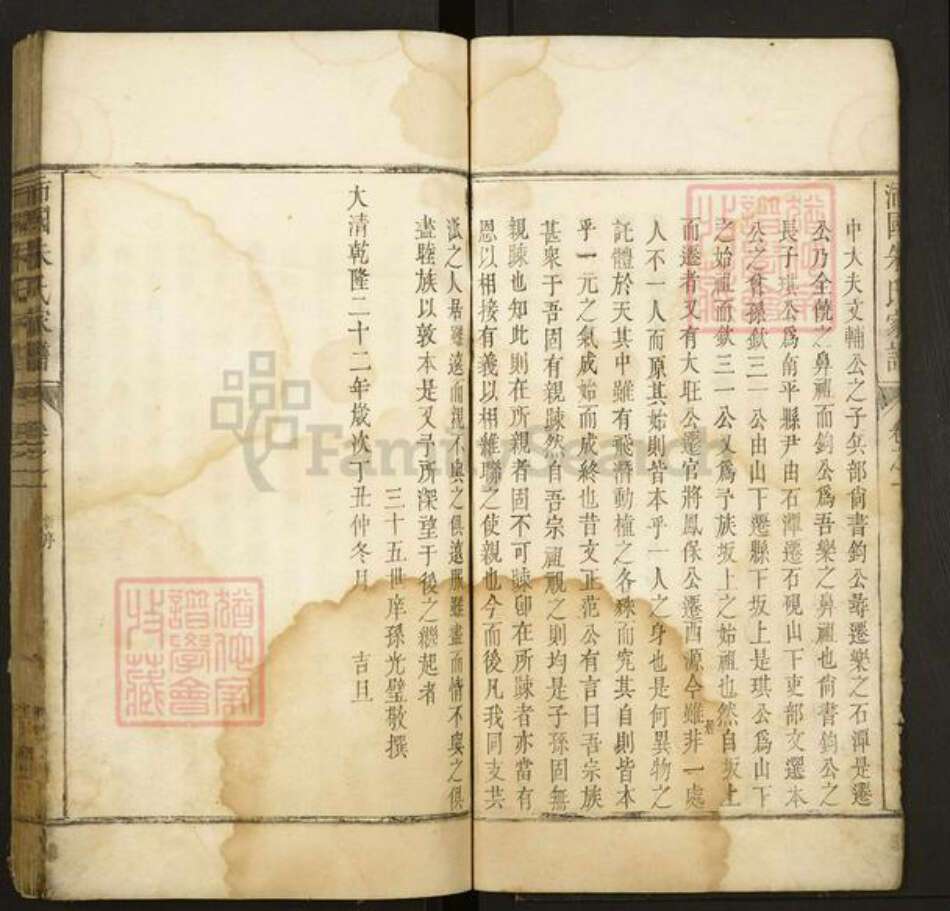 中大夫文輔公之子兵部尙書鈞公蕁遷樂之石潭是遷
公乃全饒之鼻祖而鈞公爲吾樂之鼻祖也尙書鈞公之
長子琪公爲南平縣尹由石潭遷石硯山下吏部文選本
公之曾孫欽三一公由山下遷縣下坂上是琪公爲山下
之始祖而欽三一公又爲予族坂上之始祖也然自坂上
而遷者又有大旺公遷官將鳳保公遷西源今雖非一處
人不一人而原其始則皆本乎一人之身也是何異物之
託體於天其中雖有飛潛動植之各殊而究其自則皆本
乎一元之氣咸始而成終也昔文正范公有言曰吾宗族
甚衆于吾固有親踈然自吾宗祖視之則均是子孫固無
親踈也知此則在所親者固不可踈卽在所踈者亦當有
恩以相接有義以相維聯之使親也今而後凡我同支共
派之人居雖遠而親不與之俱遠服雖盡而情不與之俱
盡睦族以敦本是又予所深望于後之繼起者
三十五世庠孫光璧敬撰
大清乾隆二十二年歲次丁丑仲冬月 吉旦
沛國朱氏家譜 卷之一
FamilySearch